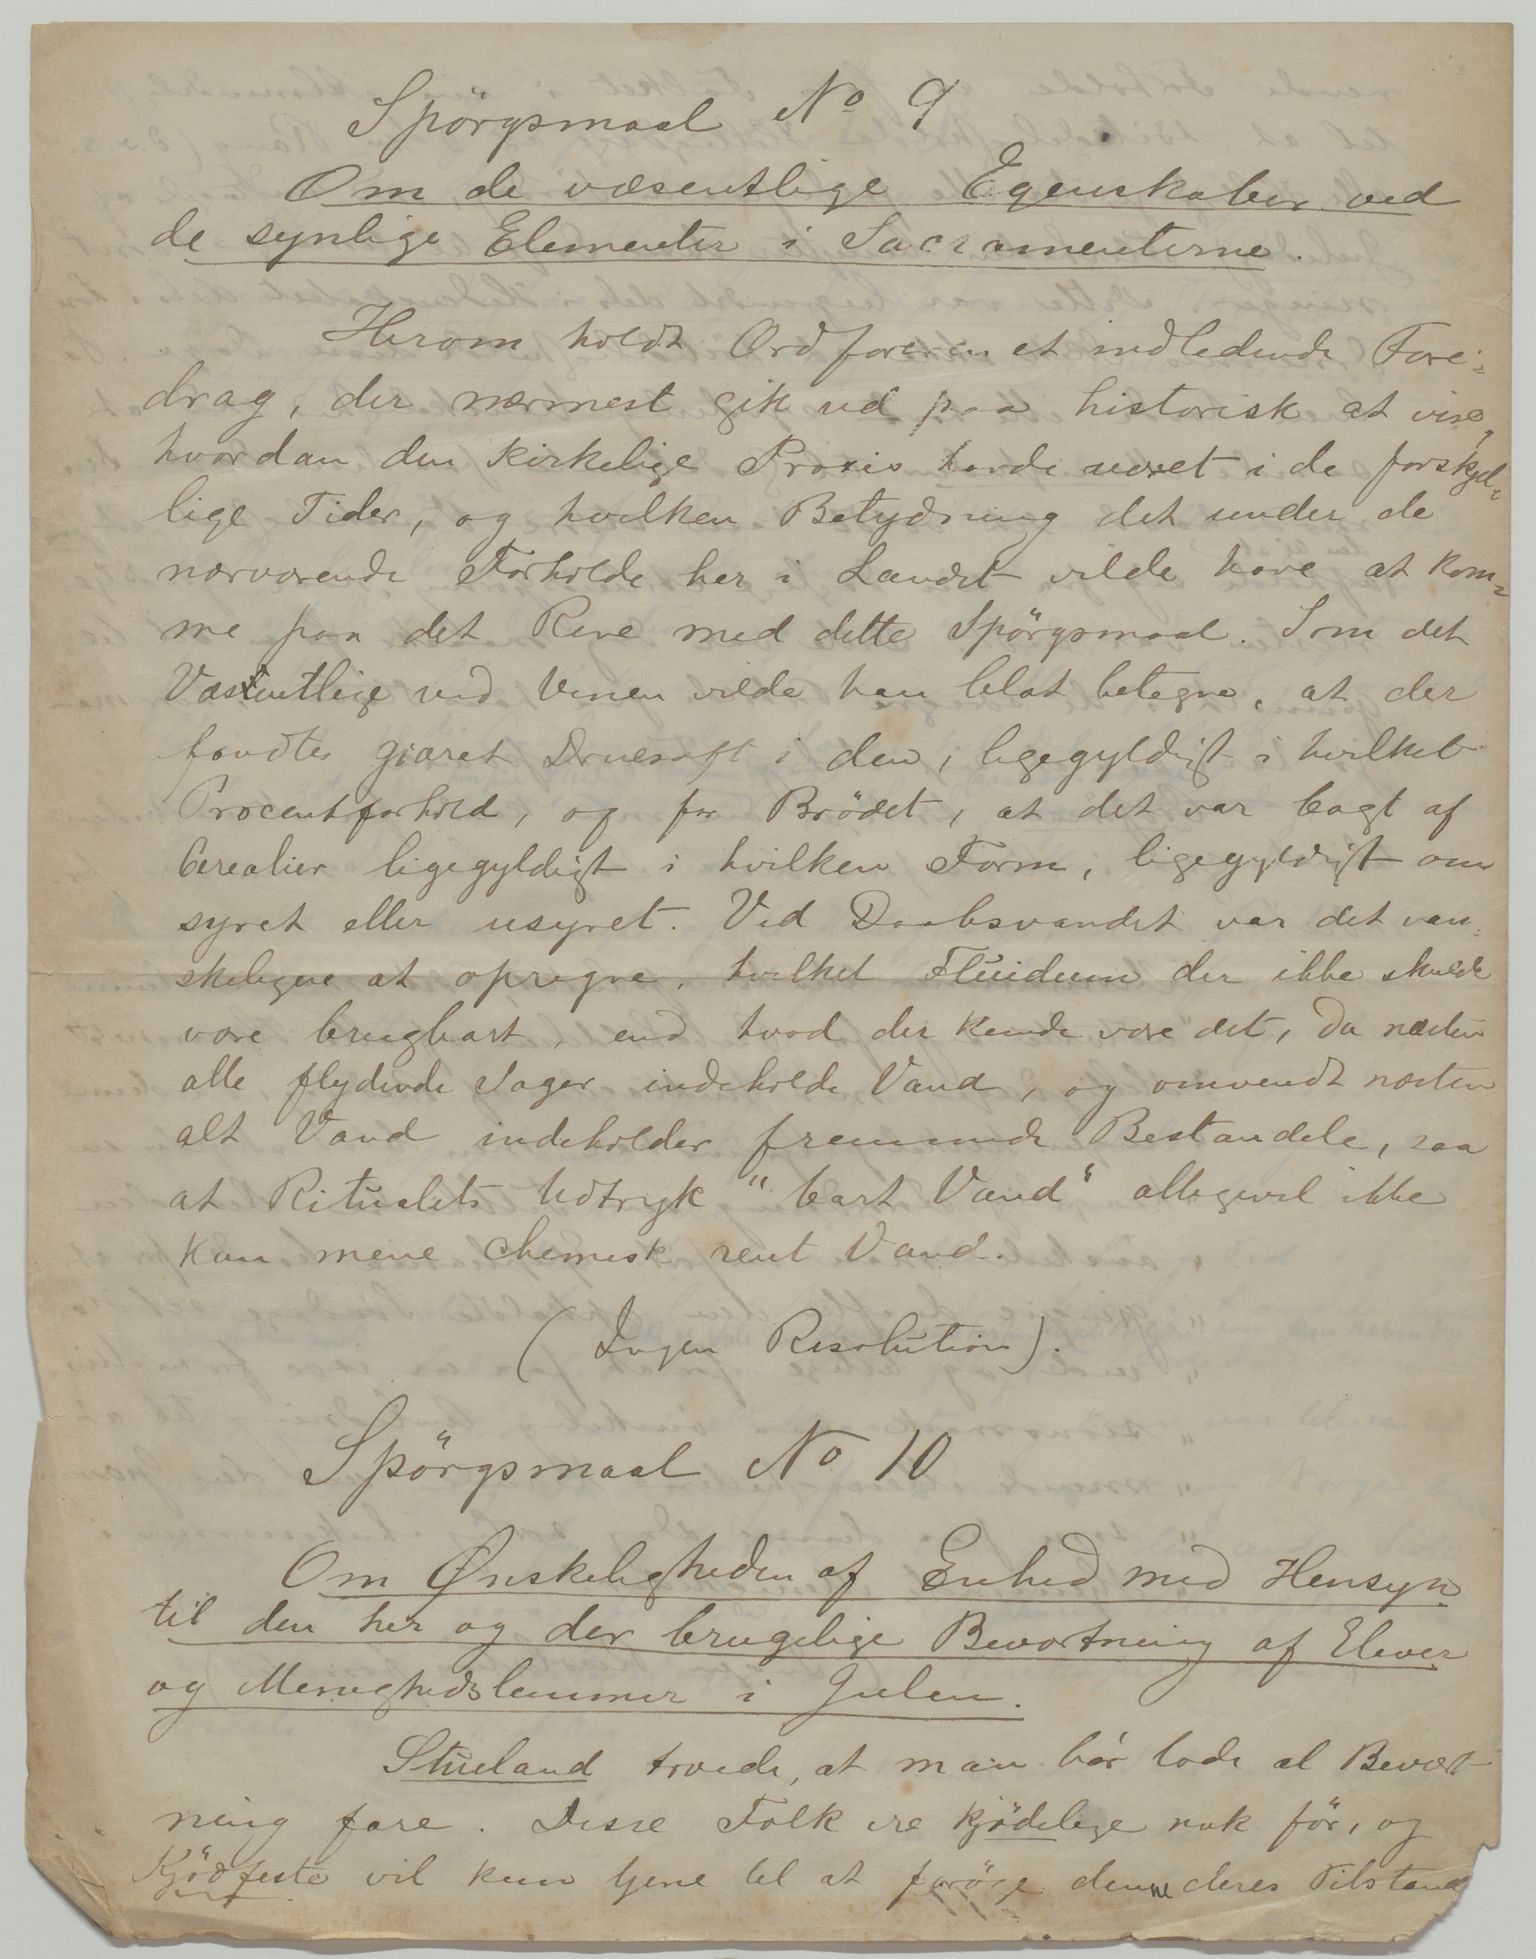 Spörgsmaal No 9
Om de væsentlige Egenskaber ved
de synlige Elementer i Sacramenterne.
Herom holdt Ordføreren et indledende Fore-
drag, der nærmest gik ud paa historisk at vise,
hvordan den kirkelige Praxis havde været i de forskjel-
lige Tider, og hvilken Betydning det under de
nærværende Forholde her i Landet vilde have at kom-
me paa det Rene med dette Spörgsmaal. Som det
Væsentlige ved Vinen vilde han blot betegne, at der
fandtes gjæret Druesaft i den, ligegyldigt i hvilket
Procentforhold, og for Brödet, at det var bagt af
Cerealier ligegyldigt i hvilken Form, ligegyldigt om
syret eller usyret. Ved Daabsvandet var det van-
skeligere at opregne, hvilket Fluidum der ikke skulde
være brugbart, end hvad der kunde være det, da næsten
alle flydende Sager indeholde Vand, og omvendt næsten
alt Vand indeholder fremmede Bestandele, saa
at Ritualets Udtryk "bart Vand" alligevel ikke
kan mene chemisk rent Vand.
(Ingen Resolution).
Spörgsmaal No 10
Om Ønskeligheden af Enhed med Hensyn
til den her og der brugelige Beværtning af Elever
og Menighedslemmer i Julen.
Stueland troede, at man bör lade al Bevært-
ning fare. Disse Folk ere kjödelige nok för, og
Kjödfeste vil kun tjene til at foröge denne deres Tilstand